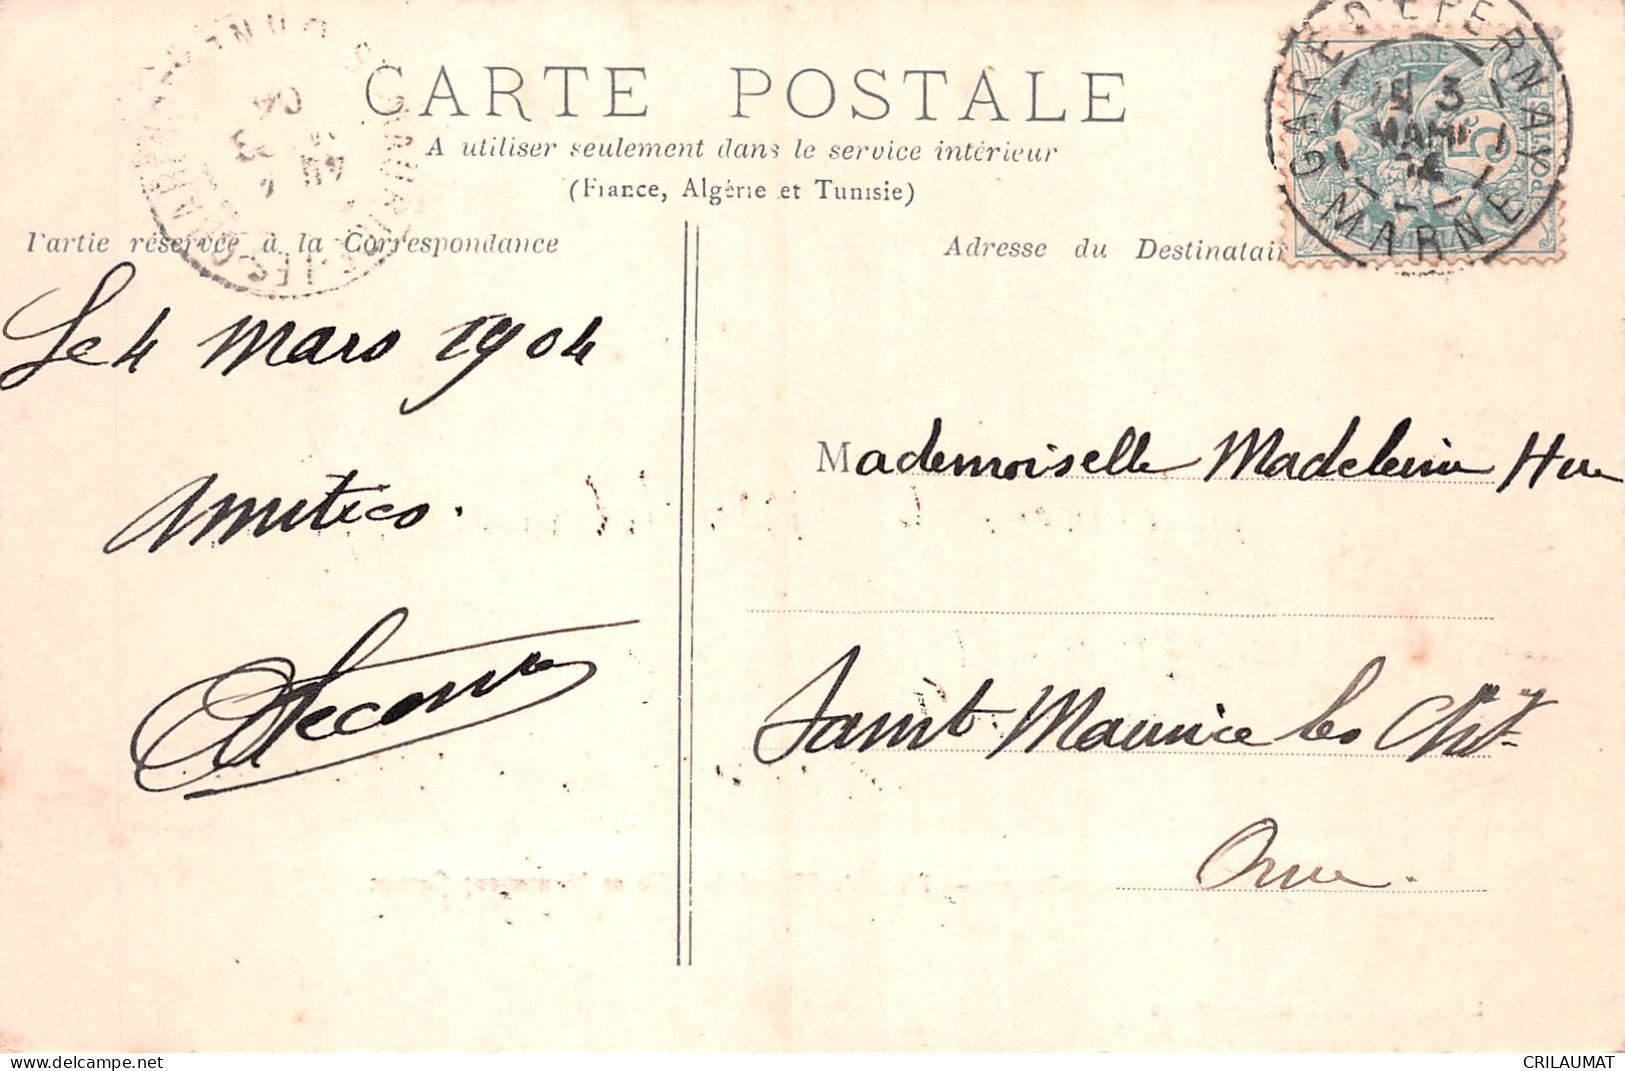 CARTE POSTALE
A utiliser seulement dans le service intérieur
(France, Algérie et Tunisie)
Partie réservée à la Correspondance
Adresse du Destinatair
GARE D'EPERNAY
MARNE
5
POSTES
Le 4 mars 1904
Amitiés.
Mademoiselle Madeleine Hue
Saint Maurice les Ch
Orne.
CRILAUMAT